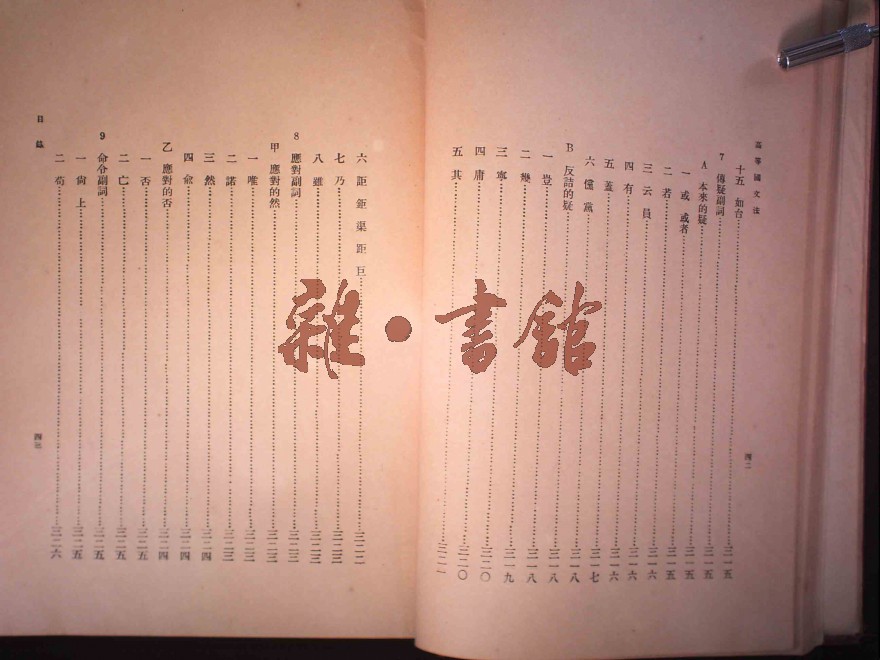 高等國文法
十五 如台 三一五
7 傳疑副詞 三一五
A 本來的疑 三一五
一 或 或者 三一五
二 若 三一五
三 云 員 三一六
四 有 三一六
五 蓋 三一六
六 儻 黨 三一七
B 反詰的疑 三一八
一 豈 三一八
二 幾 三一八
三 寧 三一九
四 庸 三二〇
五 其 三二一
四二
六 詎 鉅 渠 距 巨 三二二
七 乃 三二三
八 雖 三二三
8 應對副詞 三二三
甲 應對的然 三二三
一 唯 三二三
二 諾 三二三
三 然 三二四
四 俞 三二四
乙 應對的否 三二四
一 否 三二五
二 亡 三二五
9 命令副詞 三二五
一 尚 上 三二五
二 苟 三二六
目錄
四三
雜·書館